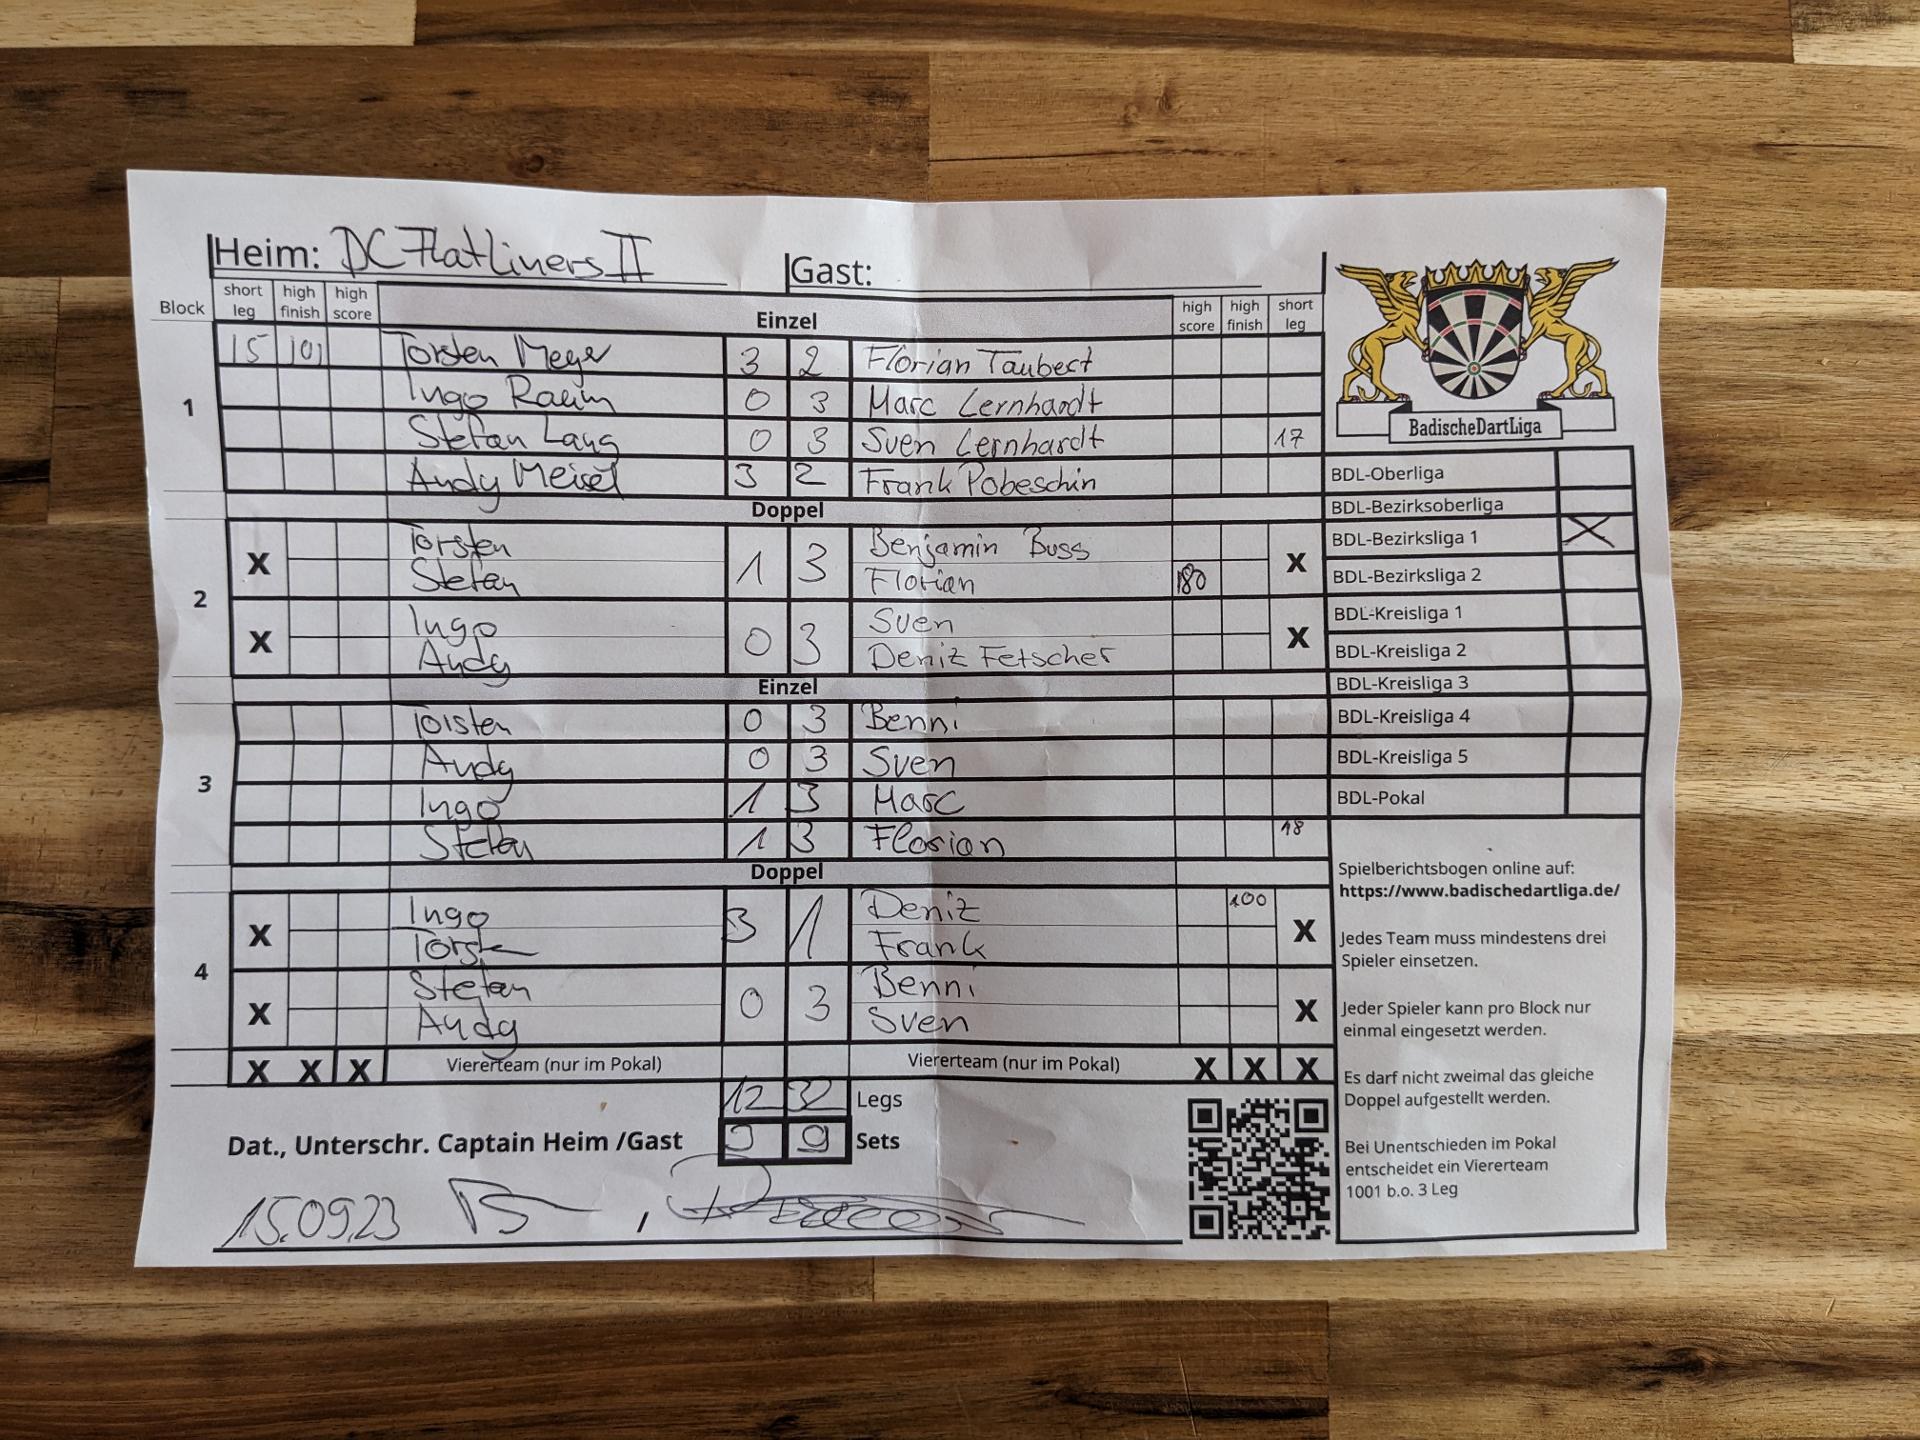 Heim: DC Flatliners II Gast:
Block short leg high finish high score Einzel high score high finish short leg
1
15 101 Torsten Meyer 3 2 Florian Taubert
Ingo Raum 0 3 Marc Lernhardt
Stefan Lang 0 3 Sven Lernhardt 17
Andy Meisel 3 2 Frank Pobeschin
Doppel
2
X Torsten 1 3 Benjamin Buss X
Stefan Florian 180
X Ingo 0 3 Sven X
Andy Deniz Fetscher
Einzel
3
Torsten 0 3 Benni
Andy 0 3 Sven
Ingo 1 3 Marc
Stefan 1 3 Florian 18
Doppel
4
X Ingo 3 1 Deniz 100 X
Torsten Frank
X Stefan 0 3 Benni X
Andy Sven
X X X Viererteam (nur im Pokal) Viererteam (nur im Pokal) X X X
12 32 Legs
Dat., Unterschr. Captain Heim /Gast 9 Sets
15.09.23
BadischeDartLiga
BDL-Oberliga
BDL-Bezirksoberliga
BDL-Bezirksliga 1 X
BDL-Bezirksliga 2
BDL-Kreisliga 1
BDL-Kreisliga 2
BDL-Kreisliga 3
BDL-Kreisliga 4
BDL-Kreisliga 5
BDL-Pokal
Spielberichtsbogen online auf:
https://www.badischedartliga.de/
Jedes Team muss mindestens drei
Spieler einsetzen.
Jeder Spieler kann pro Block nur
einmal eingesetzt werden.
Es darf nicht zweimal das gleiche
Doppel aufgestellt werden.
Bei Unentschieden im Pokal
entscheidet ein Viererteam
1001 b.o. 3 Leg